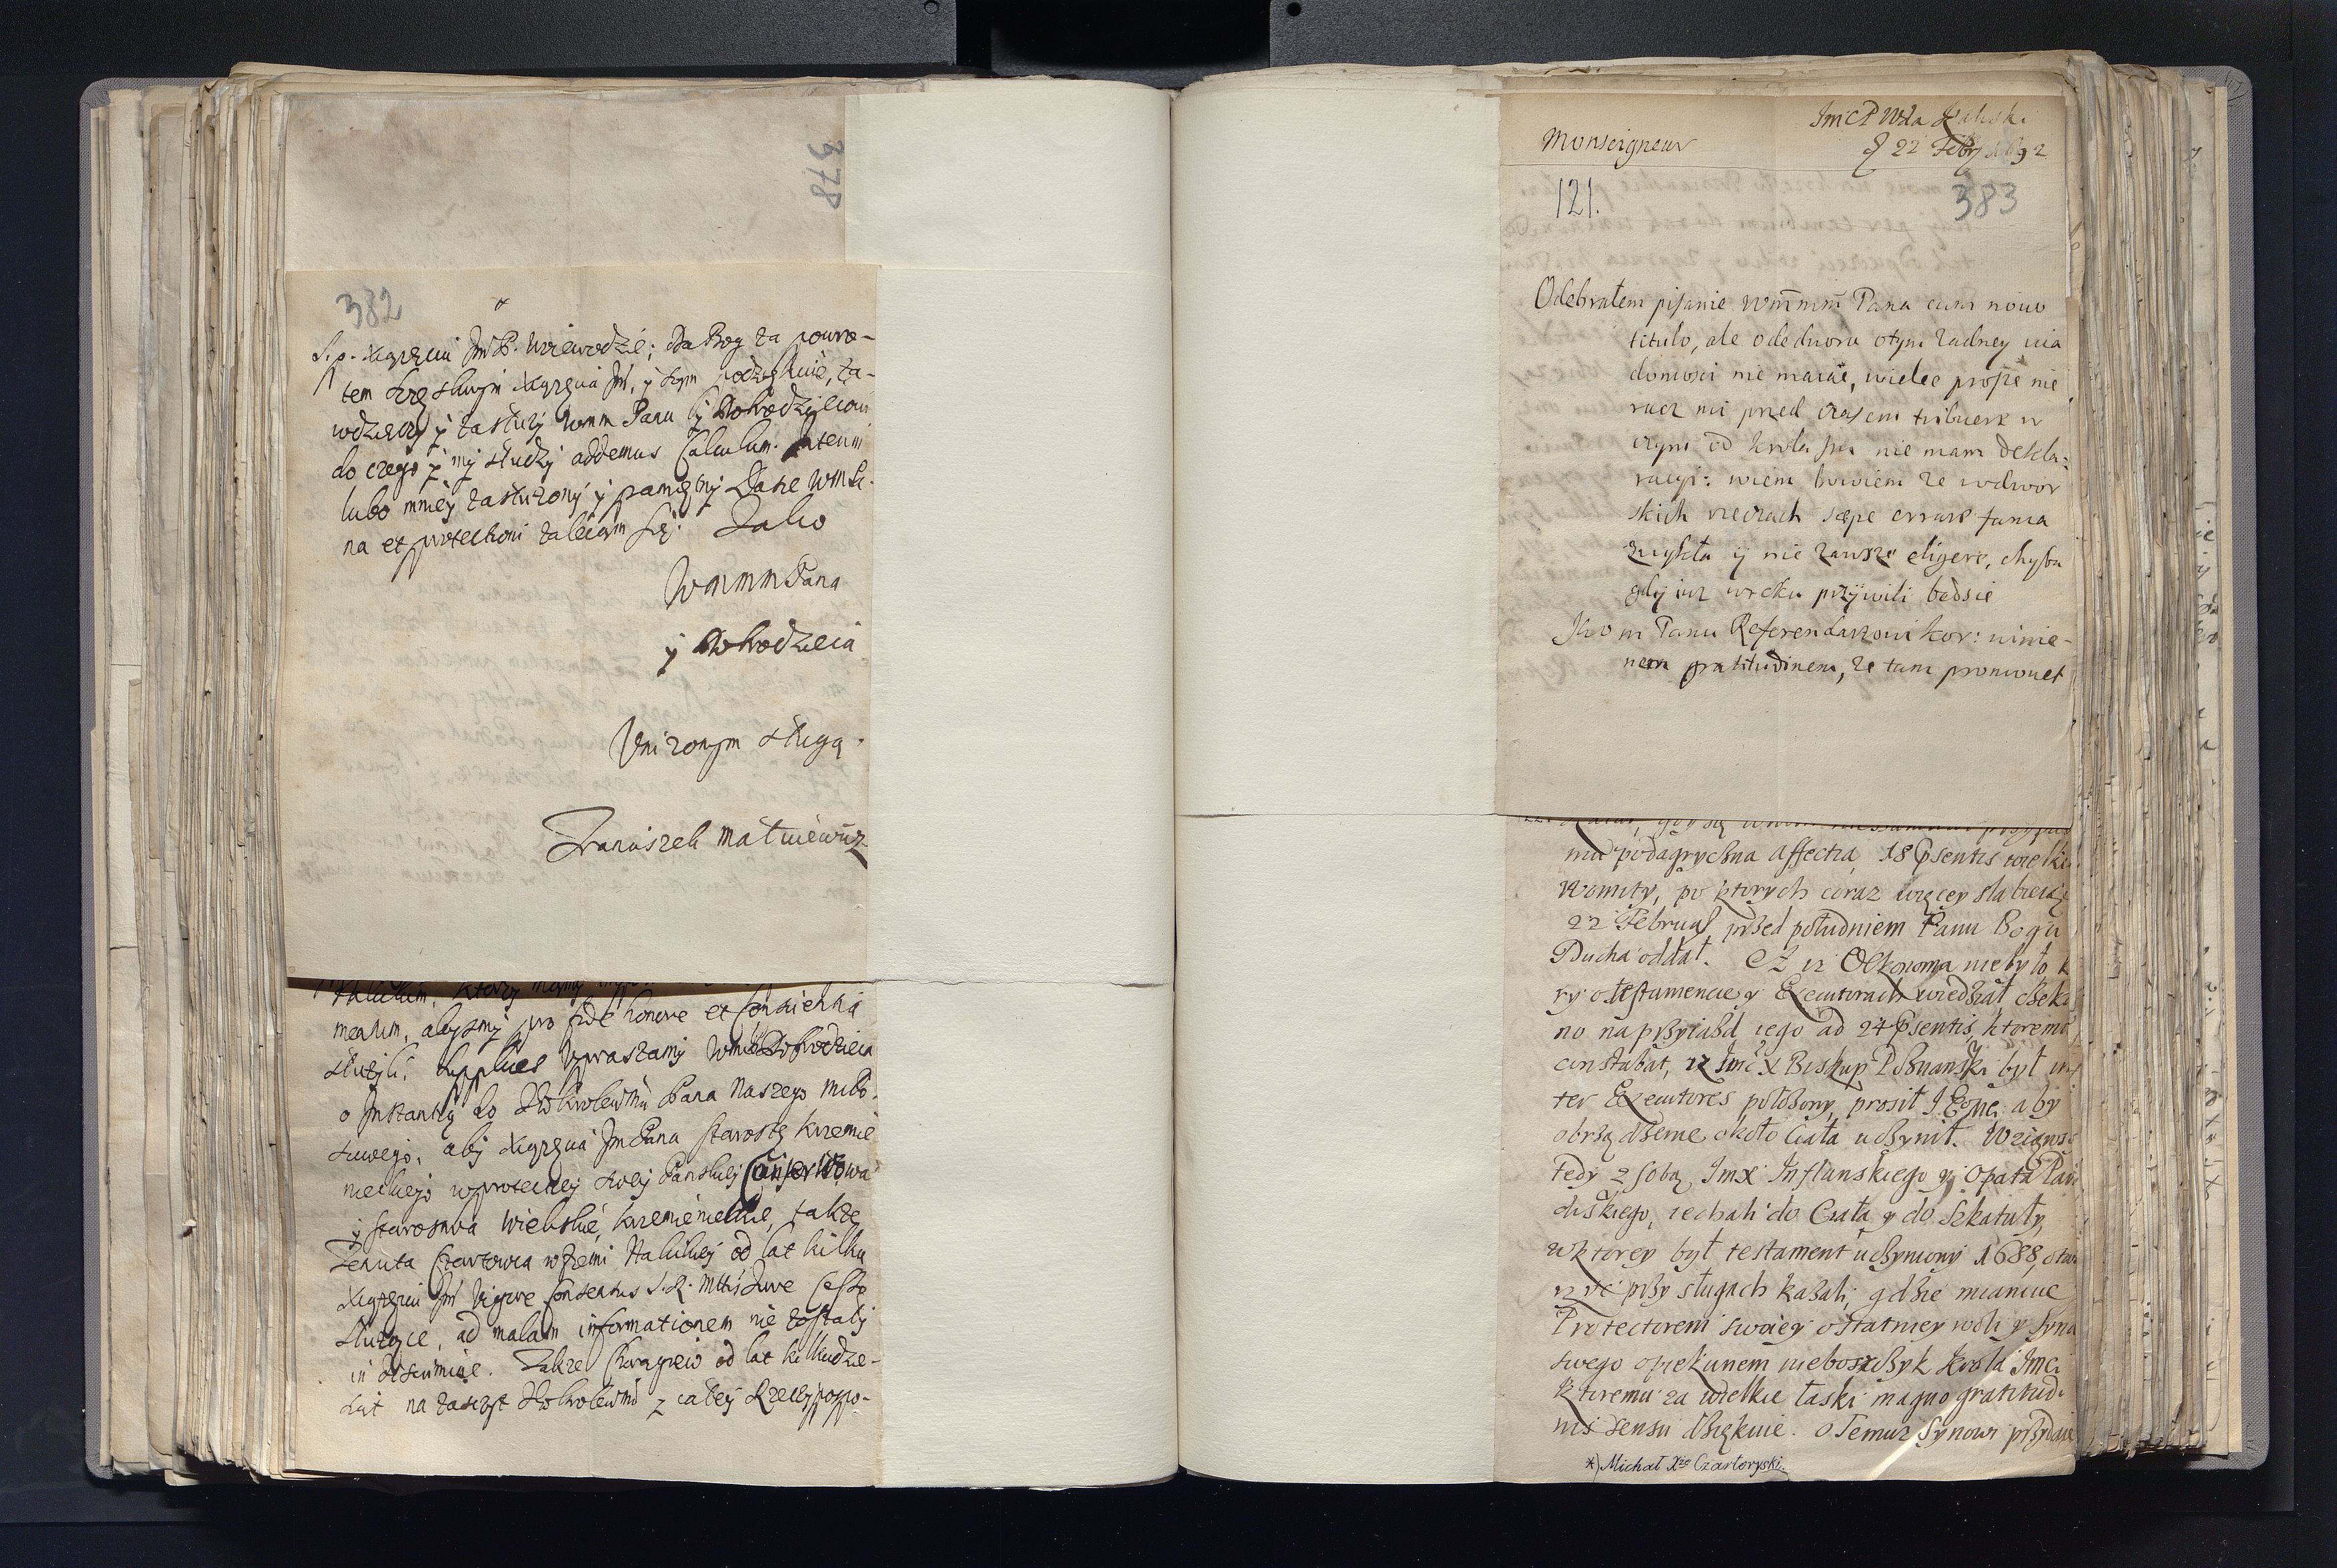 378
382
S. p. Xiążęciu Jm P. Woiewodzie; Da Bog za powro-
tem
wdzięczy y zasłuzy Wmm Panu y Dobrodzieiowi
do czego y my słudzy addemus Calculum. Interim
lubo mniey zasłuzony y
na et protectioni zalecam się. Jako
WMMM Pana
y Dobrodzieia
Unizonym sługą.
Franciszek Matuiewicz
mearum, abysmy pro fide honore et
słuzyli. Supplices Upraszamy Dobrodzieia
o Instantią do Pana Naszego Miło-
sciwego, aby Xiążęcia Jm Pana Starostę Krzemie
nieckiego w protectiey swey Panskiey
y Starostwa Wieluńskie, Krzemienieckie, także
Tenuta Czartowca w Ziemi Halickiey od lat kilku
Xiążęciu Jm Vigore Consensus S. R. Mttis Jure
słuzące, ad malam informationem nie zostały
in discrimine. Także Chorągiew od lat kilkudzie-
siąt na zaszczyt z całey Rzeczypospo-
Monseigneur
Jmć P Wda Kaliski
d 22 Febr 1692
121.
383
Odebrałem pisanie Wmmm Pana cum novo
titulo, ale ode dworu o tym zadney wia
domosci nie maiąc, wielce proszę nie
racz mi przed czasem tribuere w
czym od Krola Jmci nie mam dekla:
racyi: wiem bowiem ze w dwor
skich rzeczach sæpe errare fama
zwykła y nie zawsze eligere, chyba
gdy iuz w ręku przywili będzie
Jmom Panu Referendarzowi Kor: winie-
nem gratitudinem, ze tam promovet
ma podagryczna affectia, 18 Psentis wielkie
Womity, po ktorych coraz więcey słabieiąc
22 Februar przed południem Panu Bogu
Ducha oddał. A iz Oekonoma nie było k
ry o testamencie y Executorach wiedział czeka
no na przyiazd iego ad 24 Psentis, ktoremu
constabat, iz Jmć X Biskup Poznanski był in
ter Executores połozony, prosił J. Eqne aby
obrządzenie około Ciała uczynił. Wziąwsz
tedy z sobą Jmx Inflanskiego y Opata Para
diskiego, iechali do Ciała y do Szkatuły,
w ktorey był testament uczyniony 1688, otwo
rzyć przy sługach kazali, gdzie mianuie
Protectorem swoiey ostatniey woli y syna
swego opiekunem nieboszczyk Krola Jmci
Ktoremu za wielkie łaski magno gratitudi
nis sensu dziękuie. O Temuz Synowi przydaie
*) Michał Xże Czartoryski.